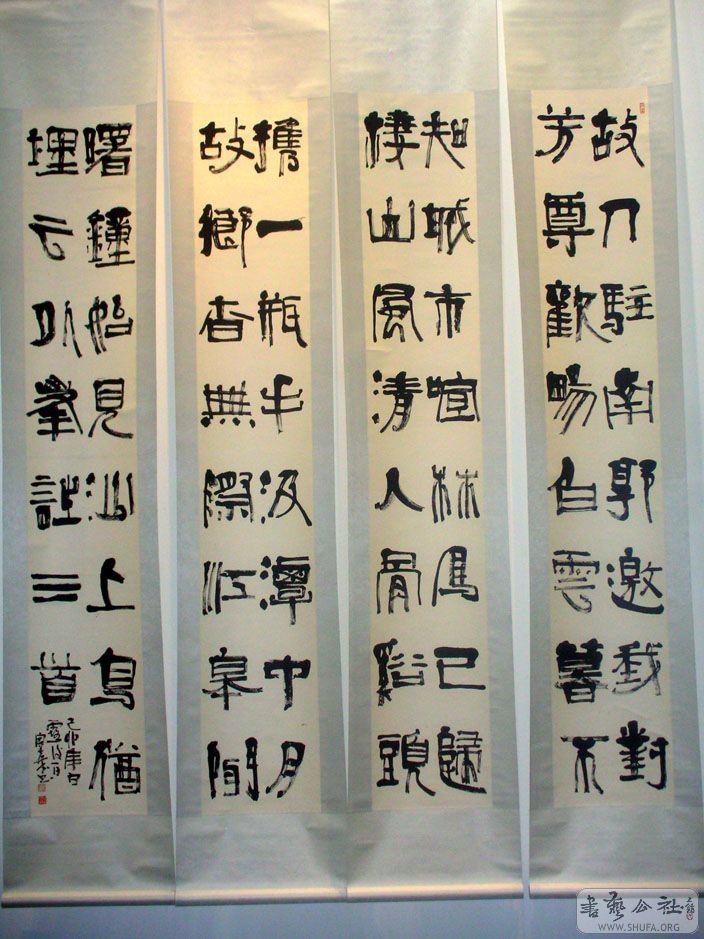 故人駐南郭邀我對
芳尊歡暢白雲暮不
知城市喧林鳥已歸
棲山風清人骨谿頭
携一瓶手汲潭中月
故鄉杳無際江皋聞
曙鐘始見沙上鳥猶
埋云外峯詩三首
己卯
書藝公社
WWW.SHUFA.ORG